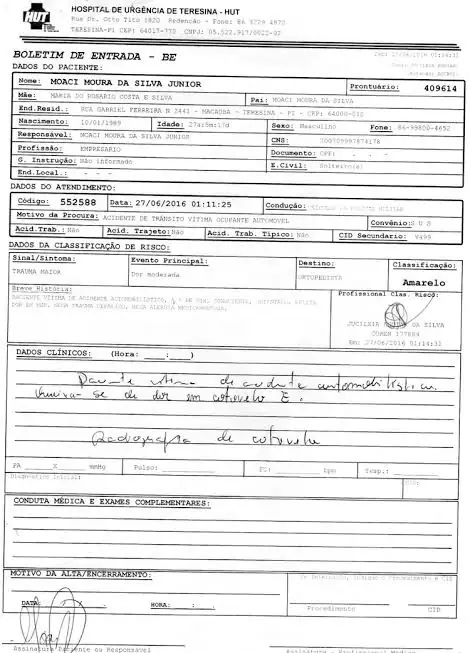 HUT
HOSPITAL DE URGÊNCIA DE TERESINA - HUT
Rua Dr. Otto Tito 1820 Redenção - Fone: 86 3229 4872
TERESINA-PI CEP: 64017-770 CNPJ: 05.522.917/0022-02
BOLETIM DE ENTRADA - BE
DADOS DO PACIENTE:
Nome: MOACI MOURA DA SILVA JUNIOR Prontuário: 409614
Mãe: MARIA DO ROSARIO COSTA E SILVA Pai: MOACI MOURA DA SILVA
End.Resid.: RUA GABRIEL FERREIRA N 2441 - MACAUBA - TERESINA - PI - CEP: 64000-010
Nascimento: 10/01/1989 Idade: 27a:5m:17d Sexo: Masculino Fone: 86-99800-4652
Responsável: MOACI MOURA DA SILVA JUNIOR CNS: 700709997874178
Profissão: EMPRESARIO Documento: CPF: . . -
G. Instrução: Não informado E.Civil: Solteiro(a)
End.Local.: - -
DADOS DO ATENDIMENTO:
Código: 552588 Data: 27/06/2016 01:11:25 Condução:
Motivo da Procura: ACIDENTE DE TRÂNSITO VÍTIMA OCUPANTE AUTOMOVEL Convênio: S U S
Acid.Trab.: Não Acid. Trajeto: Não Acid. Trab. Típico: Não CID Secundario: V499
DADOS DA CLASSIFICAÇÃO DE RISCO:
Sinal/Sintoma: Evento Principal: Destino: Classificação:
TRAUMA MAIOR Dor moderada ORTOPEDISTA Amarelo
Breve História: Profissional Clas. Risco:
PACIENTE VÍTIMA DE ACIDENTE AUTOMOBILÍSTICO,
JUCILEIA DA SILVA
COREN 177889
Em: 27/06/2016 01:14:31
DADOS CLÍNICOS: (Hora: ___:___)
Paciente vítima de acidente automobilístico.
Queixa-se de dor em cotovelo E.
Radiografia de cotovelo
PA ______X______ mmHg Pulso: FC: bpm Temp.:
Diagnóstico Inicial: CID:
CONDUTA MÉDICA E EXAMES COMPLEMENTARES:
MOTIVO DA ALTA/ENCERRAMENTO:
DATA: HORA: :
Procedimento CID
Assinatura Paciente ou Responsável Assinatura - Profissional Médico